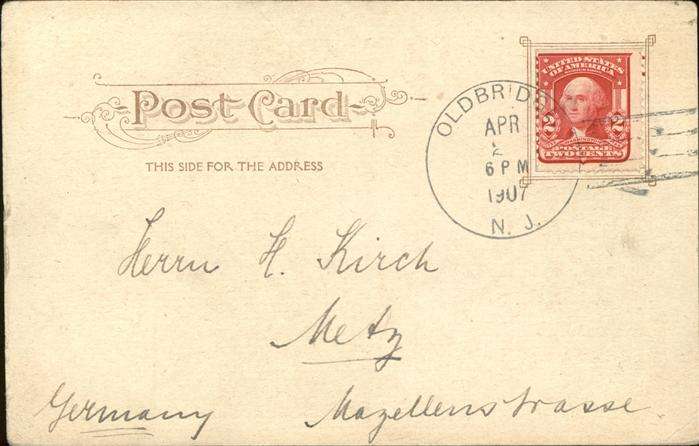 UNITED STATES
OF AMERICA
2 2
POSTAGE
TWO CENTS
Post Card
THIS SIDE FOR THE ADDRESS
OLDBRIDG
APR
2
6 PM
1907
N. J.
Herrn H. Kirch
Metz
Germany Mazellenstrasse